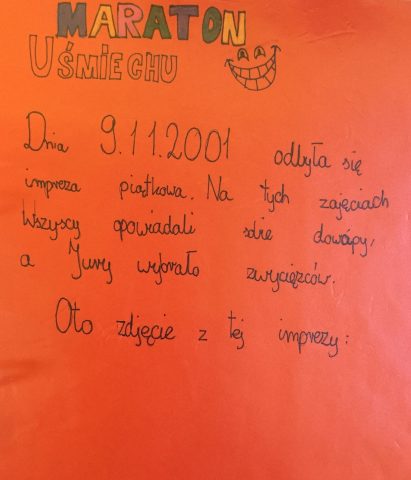 MARATON
UŚMIECHU
Dnia 9.11.2001 odbyła się
impreza piątkowa. Na tych zajęciach
Wszyscy opowiadali sobie dowcipy,
a Jury wybrało zwycięzców.
Oto zdjęcie z tej imprezy: